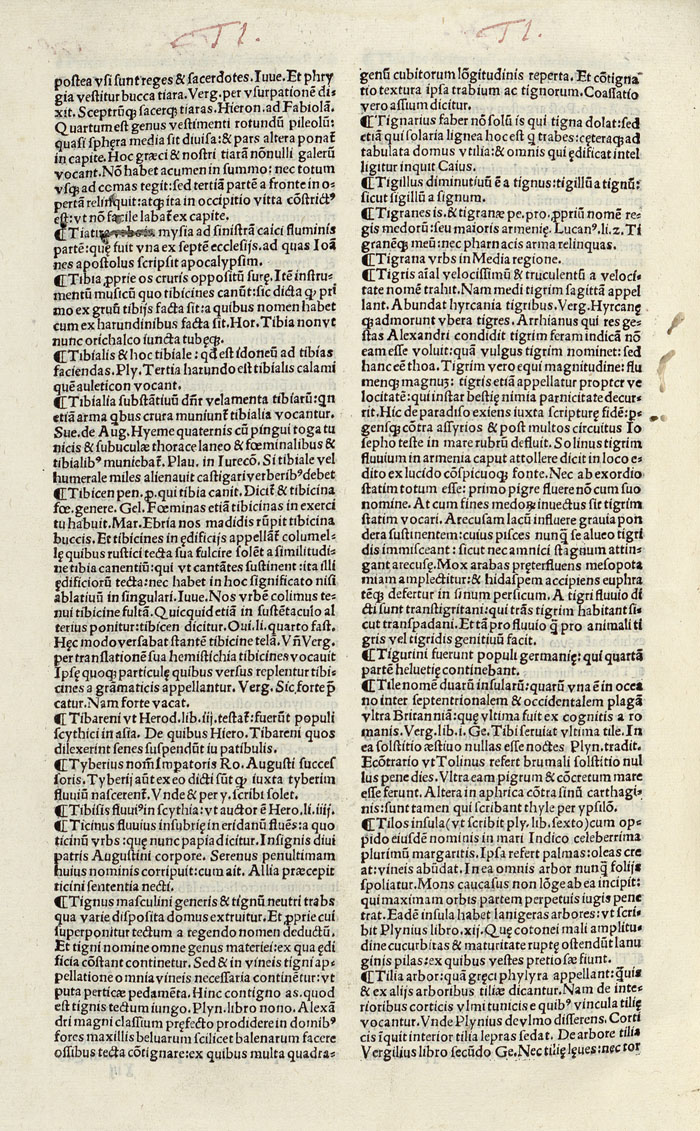 TI.
TI.
postea vsi sunt reges & sacerdotes. Iuue. Et phry
gia vestitur bucca tiara. Verg. per vsurpationē di⸗
xit. Sceptrūq; sacerq; tiaras. Hieron. ad Fabiolā.
Quartum est genus vestimenti rotundū pileolū:
quasi sphera media sit diuisa: & pars altera ponat᷑
in capite. Hoc græci & nostri tiarā nōnulli galerū
vocant. Nō habet acumen in summo: nec totum
vsq; ad comas tegit: sed tertiā partē a fronte in o⸗
pertā relinquit: atq; ita in occipitio vitta cōstrictꝰ
est: vt nō facile labat᷑ ex capite.
¶Tiatira mysia ad sinistrā caici fluminis
partē: quę fuit vna ex septē ecclesijs. ad quas Ioā
nes apostolus scripsit apocalypsim.
¶Tibia ꝓprie os cruris oppositū surę. Itē instru⸗
mentū musicū quo tibicines canūt: sic dicta ꝙ pri
mo ex gruū tibijs facta sit: a quibus nomen habet
cum ex harundinibus facta sit. Hor. Tibia non vt
nunc orichalco iuncta tubęq;.
¶Tibialis & hoc tibiale: qd̄ est idoneū ad tibias
faciendas. Ply. Tertia harundo est tibialis calami
quē auleticon vocant.
¶Tibialia substātiuū dn̄r velamenta tibiarū: qn̄
etiā arma qbus crura muniunt᷑ tibialia vocantur.
Sue. de Aug. Hyeme quaternis cū pingui toga tu
nicis & subuculæ thorace laneo & fœminalibus &
tibialibꝰ muniebat᷑. Plau. in Iurecō. Si tibiale vel
humerale miles alienauit castigari verberibꝰ debet
¶Tibicen pen. ꝓ. qui tibia canit. Dicit᷑ & tibicina
fœ. genere. Gel. Fœminas etiā tibicinas in exerci
tu habuit. Mar. Ebria nos madidis rūpit tibicina
buccis. Et tibicines in ędificijs appellāt᷑ columel⸗
lę quibus rustici tecta sua fulcire solēt a similitudi⸗
ne tibia canentiū: qui vt cantātes sustinent: ita illi
ędificiorū tecta: nec habet in hoc significato nisi
ablatiuū in singulari. Iuue. Nos vrbē colimus te⸗
nui tibicine fultā. Quicquid etiā in sustētaculo al
terius ponitur: tibicen dicitur. Oui. li. quarto fast.
Hęc modo versabat stantē tibicine telā. Vn̄ Verg.
per translationē sua hemistichia tibicines vocauit
Ipsę quoq; particulę quibus versus replentur tibi⸗
cines a grāmaticis appellantur. Verg. Sic forte p̄
catur. Nam forte vacat.
¶Tibareni vt Herod. lib. iij. testat᷑: fuerūt populi
scythici in asia. De quibus Hiero. Tibareni quos
dilexerint senes suspendūt iu patibulis.
¶Tyberius nom̄ Imꝑatoris Ro. Augusti succes
soris. Tyberij aūt ex eo dicti sūt ꝙ iuxta tyberim
fluuiū nascerent᷑. Vnde & per y. scribi solet.
¶Tibisis fluuiꝰ in scythia: vt auctor ē Hero. li. iiij.
¶Ticinus fluuius insubrię in eridanū fluēs: a quo
ticinū vrbs: quę nunc papia dicitur. Insignis diui
patris Augustini corpore. Serenus penultimam
huius nominis corripuit: cum ait. Allia præcepit
ticini sententia necti.
¶Tignus masculini generis & tignū neutri trabs
qua varie disposita domus extruitur. Et ꝓprie cui
superponitur tectum a tegendo nomen deductū.
Et tigni nomine omne genus materiei: ex qua ędi
ficia cōstant continetur. Sed & in vineis tigni ap⸗
pellatione omnia vineis necessaria continētur: vt
puta perticæ pedamēta. Hinc contigno as. quod
est tignis tectum iungo. Plyn. libro nono. Alexā
dri magni classium pręfecto prodidere in domibꝰ
fores maxillis beluarum scilicet balenarum facere
ossibus tecta cōtignare: ex quibus multa quadra⸗
genū cubitorum lōgitudinis reperta. Et cōtigna
tio textura ipsa trabium ac tignorum. Coassatio
vero assium dicitur.
¶Tignarius faber nō solū is qui tigna dolat: sed
etiā qui solaria lignea hoc est q̄ trabes: cęteraq; ad
tabulata domus vtilia: & omnis qui ędificat intel
ligitur inquit Caius.
¶Tigillus diminutiuū ē a tignus: tigillū a tignū:
sicut sigillū a signum.
¶Tigranes is. & tigranæ pe. pro. ꝓpriū nomē re⸗
gis medorū: seu maioris armenię. Lucanꝰ. li. 2. Ti
granēq; meū: nec pharnacis arma relinquas.
¶Tigrana vrbs in Media regione.
¶Tigris aīal velocissimū & truculentū a veloci⸗
tate nomē trahit. Nam medi tigrim sagittā appel
lant. Abundat hyrcania tigribus. Verg. Hyrcanę
q; admorunt vbera tigres. Arrhianus qui res ge⸗
stas Alexandri condidit tigrim feram indicā nō
eam esse voluit: quā vulgus tigrim nominet: sed
hanc eē thoa. Tigrim vero equi magnitudine: flu
menq; magnuꝫ: tigris etiā appellatur propter ve
locitatē: qui instar bestię nimia parnicitate decur⸗
rit. Hic de paradiso exiens iuxta scripturę fidē: p⸗
gensq; cōtra assyrios & post multos circuitus Io
sepho teste in mare rubrū defluit. Solinus tigrim
fluuium in armenia caput attollere dicit in loco e⸗
dito ex lucido cōspicuoq; fonte. Nec ab exordio
statim totum esse: primo pigre fluere nō cum suo
nomine. At cum fines medoꝝ inuectus sit tigrim
statim vocari. Arecusam lacū influere grauia pon
dera sustinentem: cuius pisces nunq̄ se alueo tigri
dis immisceant: sicut nec amnici stagnum attin⸗
gant arecusę. Mox arabas pręterfluens mesopota
miam amplectitur: & hidaspem accipiens euphra
tēq; defertur in sinum persicum. A tigri fluuio di
cti sunt transtigritani: qui trās tigrim habitant si⸗
cut transpadani. Et tā pro fluuio q̄ pro animali ti
gris vel tigridis genitiuū facit.
¶Tigurini fuerunt populi germanię: qui quartā
partē heluetię continebant.
¶Tile nomē duarū insularū: quarū vna ē in ocea
no inter septentrionalem & occidentalem plagā
vltra Britanniā: quę vltima fuit ex cognitis a ro
manis. Verg. lib. i. Ge. Tibi seruiat vltima tile. In
ea solstitio æstiuo nullas esse noctes Plyn. tradit.
Ecōtrario vt Tolinus refert brumali solstitio nul
lus pene dies. Vltra eam pigrum & cōcretum mare
esse ferunt. Altera in aphrica cōtra sinū carthagi⸗
nis: sunt tamen qui scribant thyle per ypsilō.
¶Tilos insula (vt scribit ply. lib. sexto) cum op⸗
pido eiusdē nominis in mari Indico celeberrima
plurimū margaritis. Ipsa refert palmas: oleas cre
at: vineis abūdat. In ea omnis arbor nunq̄ folijs
spoliatur. Mons caucasus non lōge ab ea incipit:
qui maximam orbis partem perpetuis iugis pene
trat. Eadē insula habet lanigeras arbores: vt scri⸗
bit Plynius libro. xij. Quę cotonei mali amplitu⸗
dine cucurbitas & maturitate ruptę ostendūt lanu
ginis pilas: ex quibus vestes pretiosæ fiunt.
¶Tilia arbor: quā gręci phylyra appellant: q̄uis
& ex alijs arboribus tiliæ dicantur. Nam de inte⸗
rioribus corticis vlmi tunicis e quibꝰ vincula tilię
vocantur. Vnde Plynius de vlmo disserens. Corti
cis īquit interior tilia lepras sedat. De arbore tilia
Vergilius libro secūdo Ge. Nec tilię lęues: nec tor